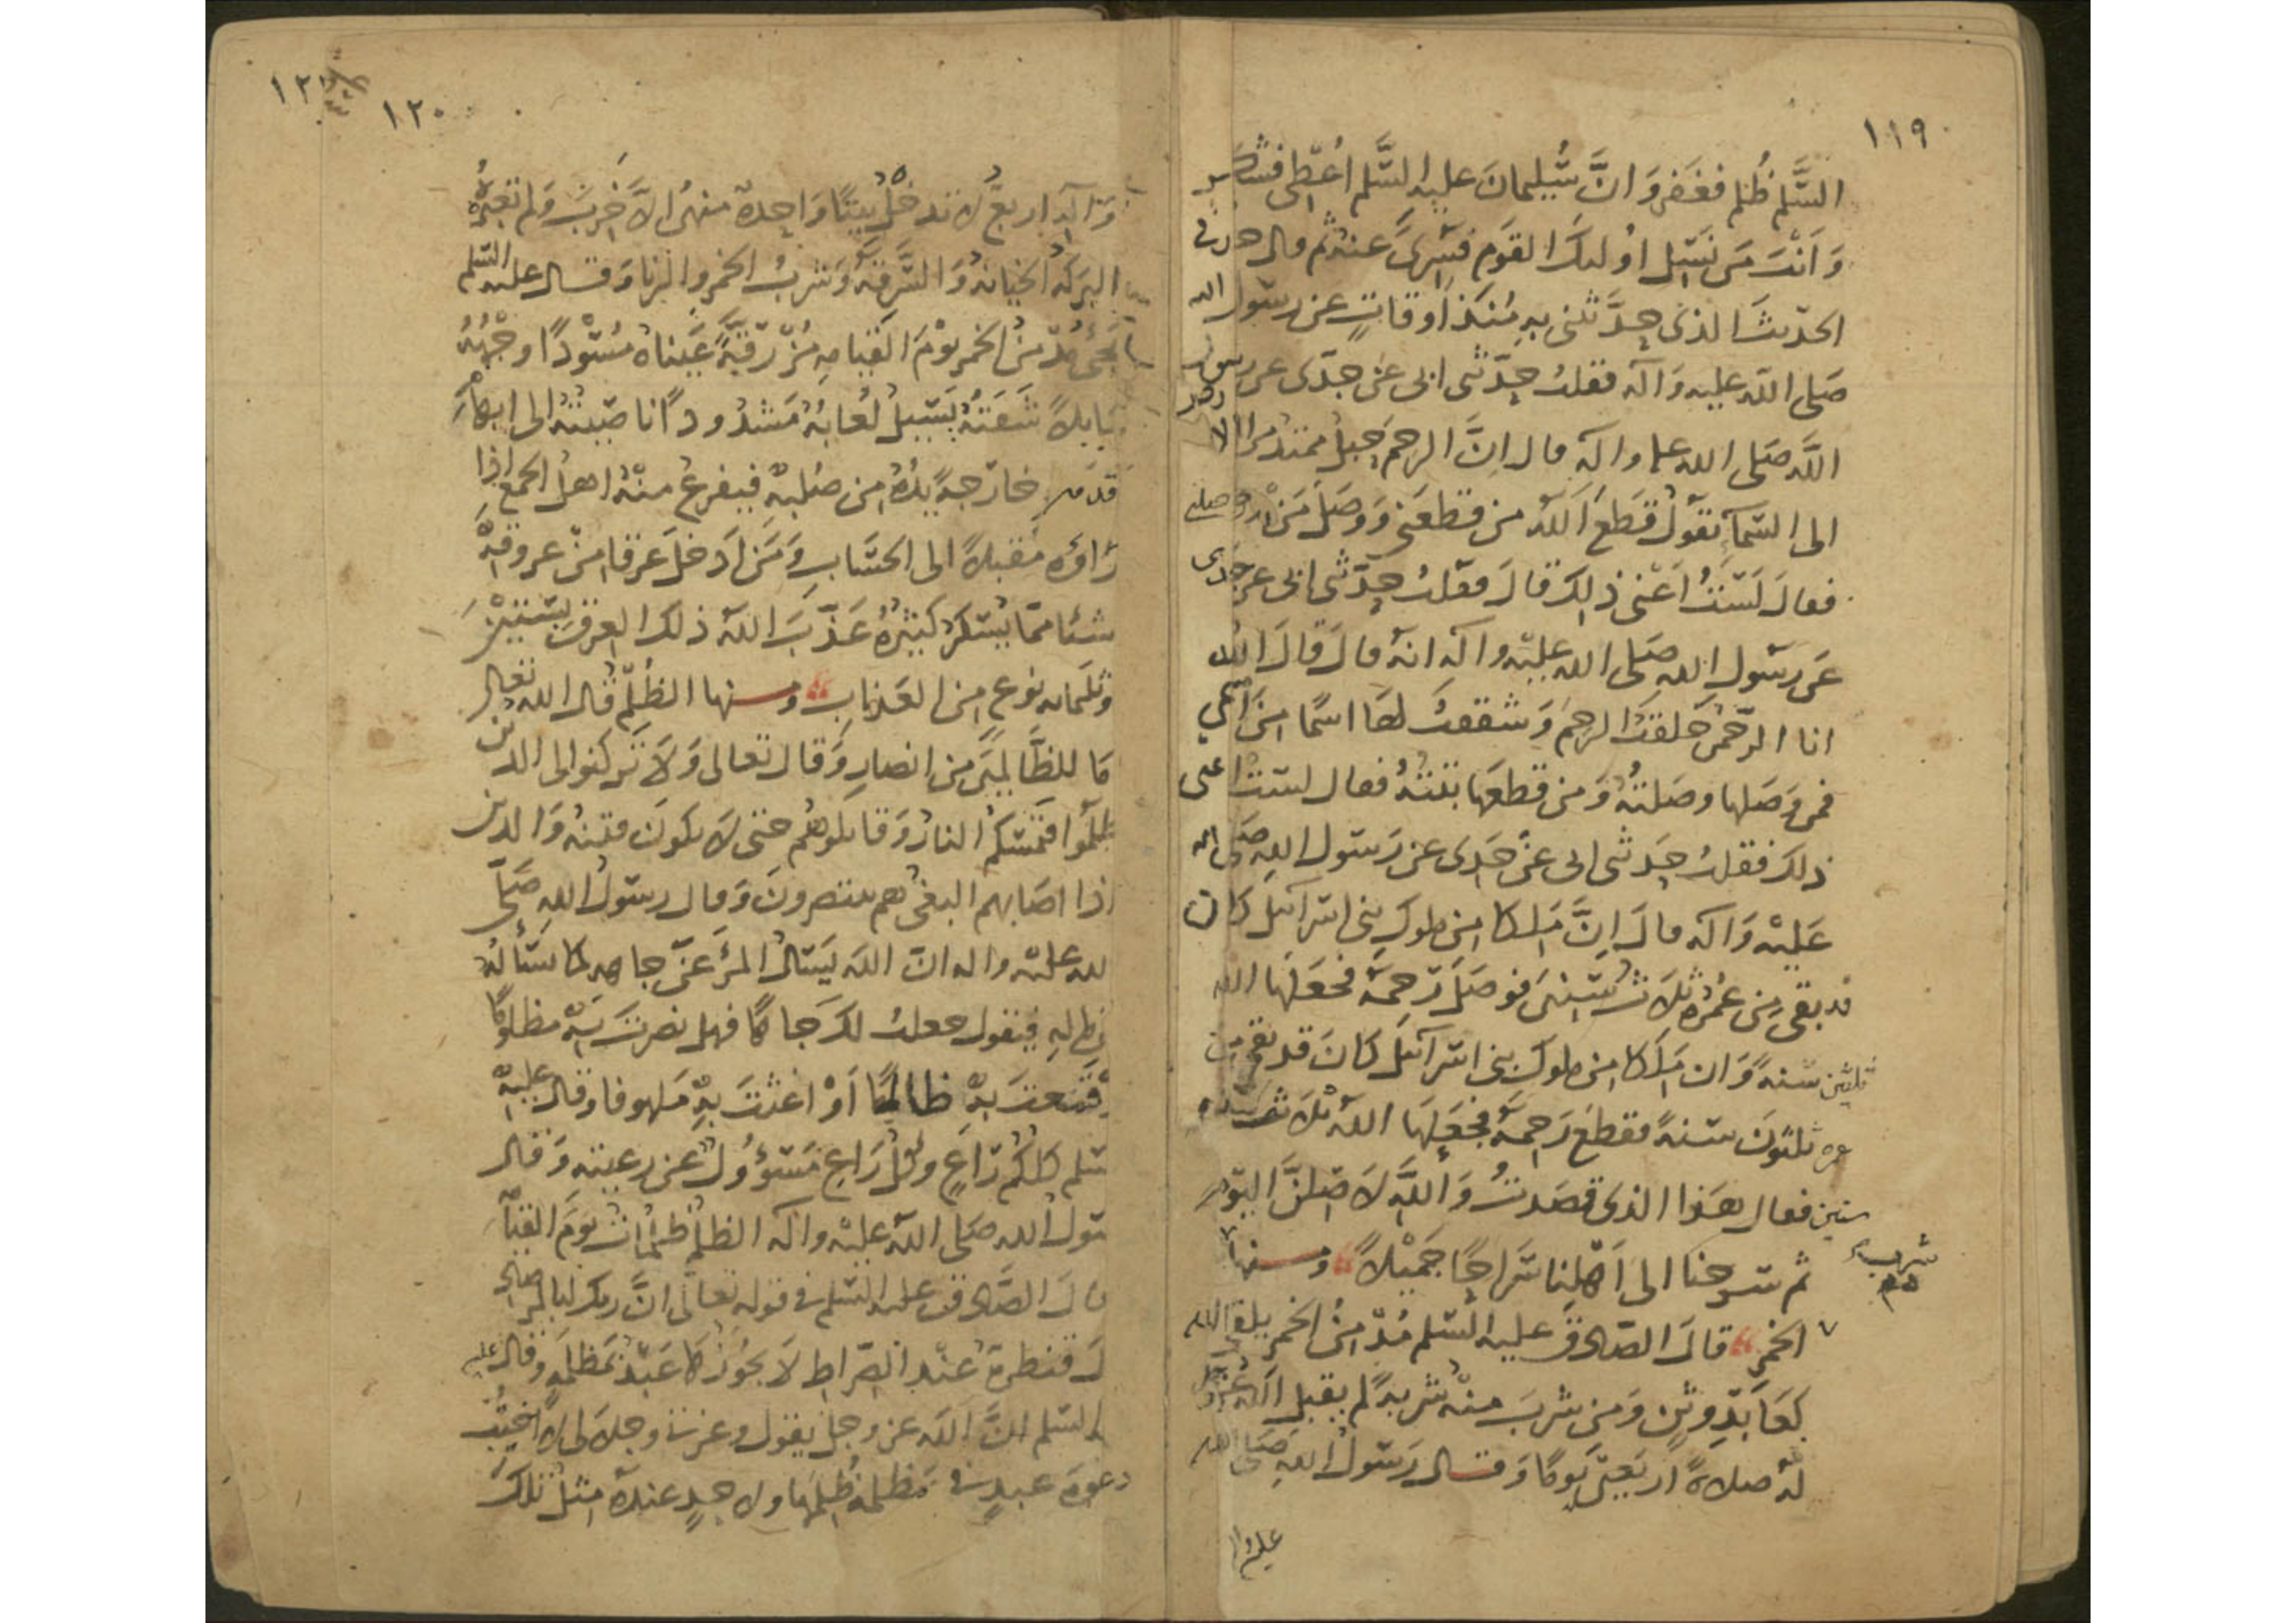 ١١٩
السَّلم ظُلم فغفر وَانَّ سُليمانَ عليه السَّلم اعُطى فشكر
وَانْتَ مَن نَسْل اوُلىك القوَم فسُرىَ عنه ثم قال حدثنى
الحدَيث الذى حِدَّثتنى به مُنذ اوقاتٍ عن رسول الله
صَلى الله عليه وَآله فقلتُ حِدّثنى ابى عن جدّى عن رسول
اللَّه صَلى الله عليه وآله قال انَّ الرحِمَ حِبلٌ ممتدٌ من الارض
الى السّماءَ تقوَلُ قطَعَ اللهُ من قطعَنى وَوَصَلَ مَنْ وصلنى
فقال لَسْتُ اعْنى ذلِك قالَ فقلتُ حِدّثنى ابى عن جدّى
عَن رسَول الله صَلى الله عليه وآله انهُ قال قالَ الله
انا الرّحمنُ خَلقتُ الرحِمَ وَشققتُ لها اسمًا من اسمى
فمن وَصَلها وصَلتهُ وَمن قطعَها بتتّهُ فقال لستُ اعنى
ذلك فقلتُ حِدَثنى ابى عن جَدى عن رَسَول اللهِ صَلى الله
عَليْه وَآله قال انَّ مَلِكا من ملوك بنى اسرآئيل كان
قد بقى من عُمرُه ثلَاث سنينَ فوصَلَ رَحِمهُ فجعَلهَا الله
ثلثين سَنهً وَان مَلِكا من ملوك بنى اسرآئيل كانَ قد بقى من
عمره ثلثونَ سنهً فقطعَ رَحِمهُ فجعَلهَا اللهُ ثلَاث
سنين فقال هَذا الذى قصَدتُ وَاللَّهِ لَاصِلنَّ اليوَم
ثم سرحنا الى اَهْلِنا سَراحًا جَميْلاً ومنها
شرب
الخمر قالَ الصّادق عليه السّلم مُدْمِنُ الخمر يلقى الله
كعَابَدِ وَثنٍ وَمن شربَ منهْ شربهً لم يقبل اللهُ عزوجل
لهُ صلاةً اربَعينَ يَومًا وَقال رَسَولُ اللهِ صَلى الله
عليه وآ
١٢٠
وَآلِه اربعٌ لَا تدخلُ بيتًا وَاحِدةٌ منهنُ الاَّ خَربَ وَلم تعمرُهُ
البَركهُ الخيانهُ وَالسَّرقهُ وَشربُ الخمر والزنا وَقال عليه السَّلم
يجىُ مُدْمنُ الخمر يوْمَ القيامهِ مُزْرَقّهً عَيناهُ مُسْودًا وجْهُهُ
مايلاً شَفَتهُ يَسيلُ لعابُهُ مَشدُودًا ناصِيتهُ الى ابهَام
قدَمهِ خارَجهً يدُهُ من صُلبهْ فيفزعُ منهْ اهلُ الجمع اذا
رَاوَه مُقبلاً الى الحسَابِ وَمَن ادَخلَ عرقا منْ عروقهِ
شئا ممّا يُسْكرُ كثيرُهُ عَذّبَ اللهُ ذلك العرقَ بستين
وثلثمائه نوَعٍ من العَذابِ ومنها الظُلم قال الله تعالى
مَا للظَّالمينَ من انصارٍ وَقال تعالى وَلَا ترَكنوا الى الذين
ظلمَوا فتمَسّكم النارُ وَقاتِلوهُم حتى لَا تكونَ فتنهٌ وَالذين
اذا اصَابهم البغىُ هم ينتصرونَ وَقال رسَولُ اللهِ صَلى
الله عليْه واله انَ الله يَسَالُ المرَءَ عن جاههِ كما يسَألهُ
عن مالهِ فيقول جعلتُ لك جاهًا فهل نصرتَ بهِ مظلومًا
او قمَعتَ بهْ ظالمًا اَوْ اغثتَ بهِ مَلهوفا وَقال عليهْ
السّلم كلكُم رَاعٍ وكلُ رَاعٍ مَسَؤُولٌ عن رعيته وَقال
رسَولُ الله صَلى اللهُ عليْه واله الظلمُ ظلماتٌ يوَمَ القيامه
قالَ الصَّادقُ عليه السّلم فى قوله تعَالى انَّ ربك لبالمرصاد
قالَ قنطرةٌ عنْد الصّراطِ لَا يجُوزُهَا عَبدٌ بمَظلمهٍ وَقال عليه
السَّلم انَّ اللهَ عز وجل يقول وعزتى وجلَالى لا اجيبُ
دعوَةَ عبدٍ فى مَظلمهٍ ظُلِمَها ولاحدٍ عندهُ مثلُ تلكَ